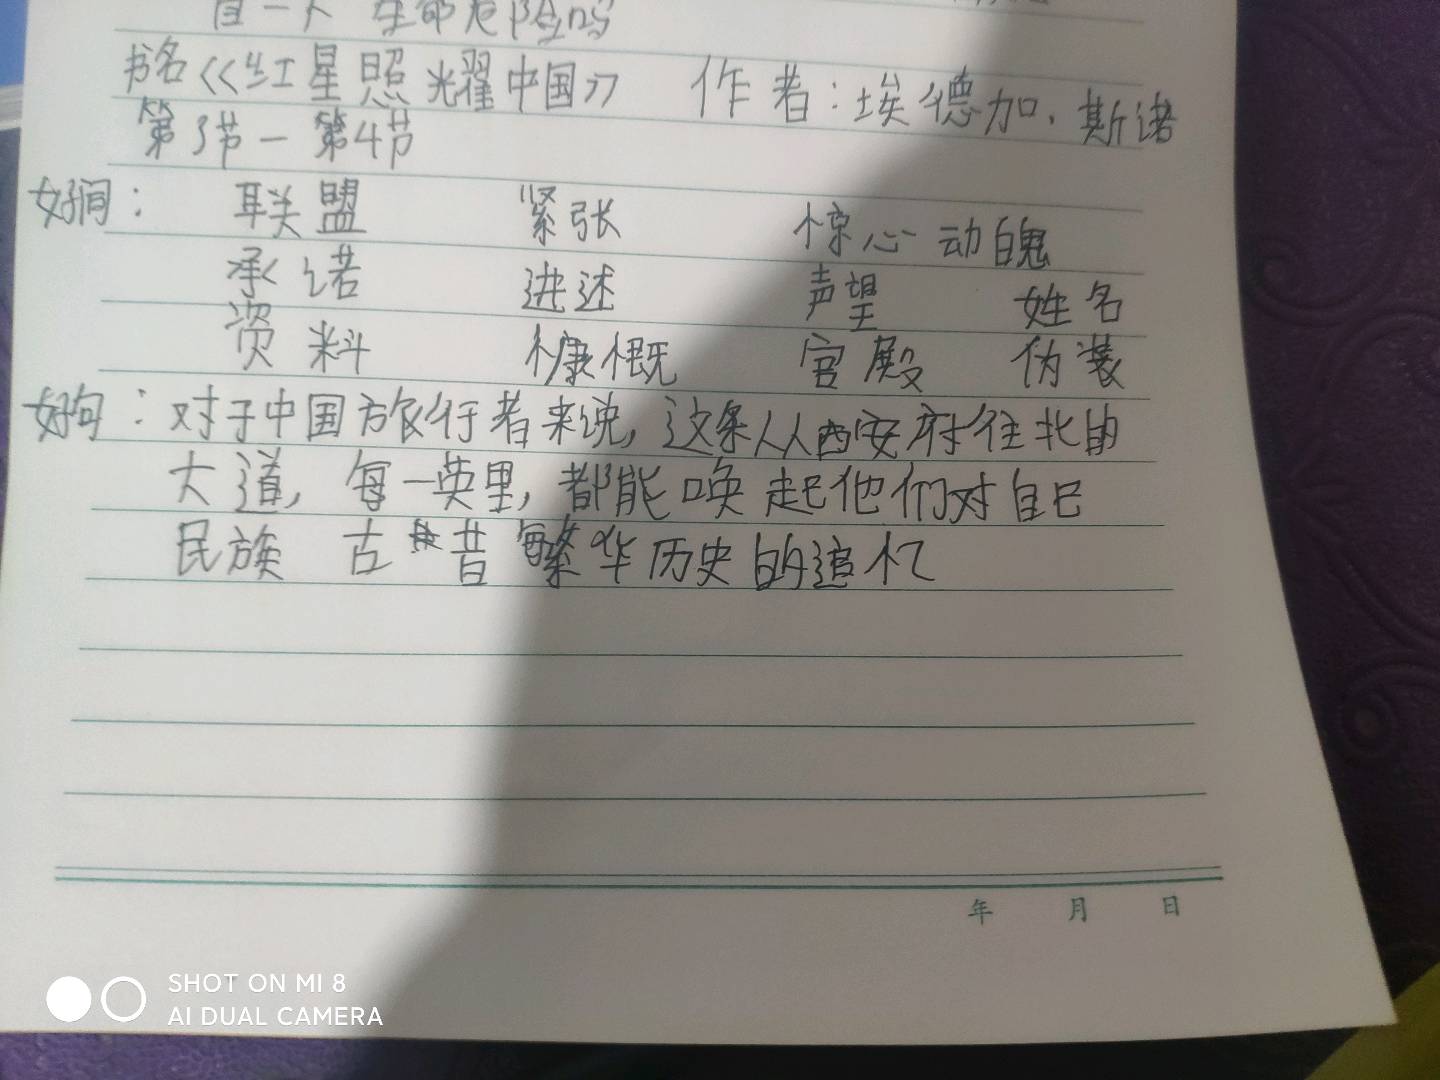 生命危险吗
书名《红星照耀中国》 作者:埃德加·斯诺
第3节一第4节
好词: 联盟 紧张 惊心动魄
承诺 讲述 声望 姓名
资料 慷慨 宫殿 伪装
好句:对于中国旅行者来说,这条从西安府往北的
大道,每一英里,都能唤起他们对自己
民族 古昔繁华历史的追忆
年 月 日
SHOT ON MI 8
AI DUAL CAMERA